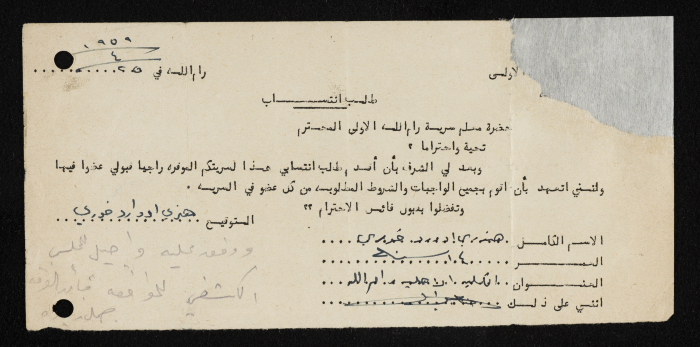 ١٩٥٩
٤
رام الله في ٢٥
الاولى
طلب انتساب
حضرة معلم سرية رام الله الاولى المحترم
تحية واحتراما ؟
وبعد لي الشرف بأن أقدم طلب انتسابي هذا لسريتكم الموقرة راجيا قبولي عضوا فيها
وانني اتعهد بأن اقوم بجميع الواجبات والشروط المطلوبة من كل عضو في السرية .
وتفضلوا بقبول فائق الاحترام ؟؟
التوقيع هنري ادوارد خوري
الاسم الكامل هنري ادورد خوري
العمر ١٤ سنة
العنوان الاهلية رام الله
اثني على ذلك
ووفق عليه واحيل للمجلس
الكشفي للموافقة قائد الفرقة